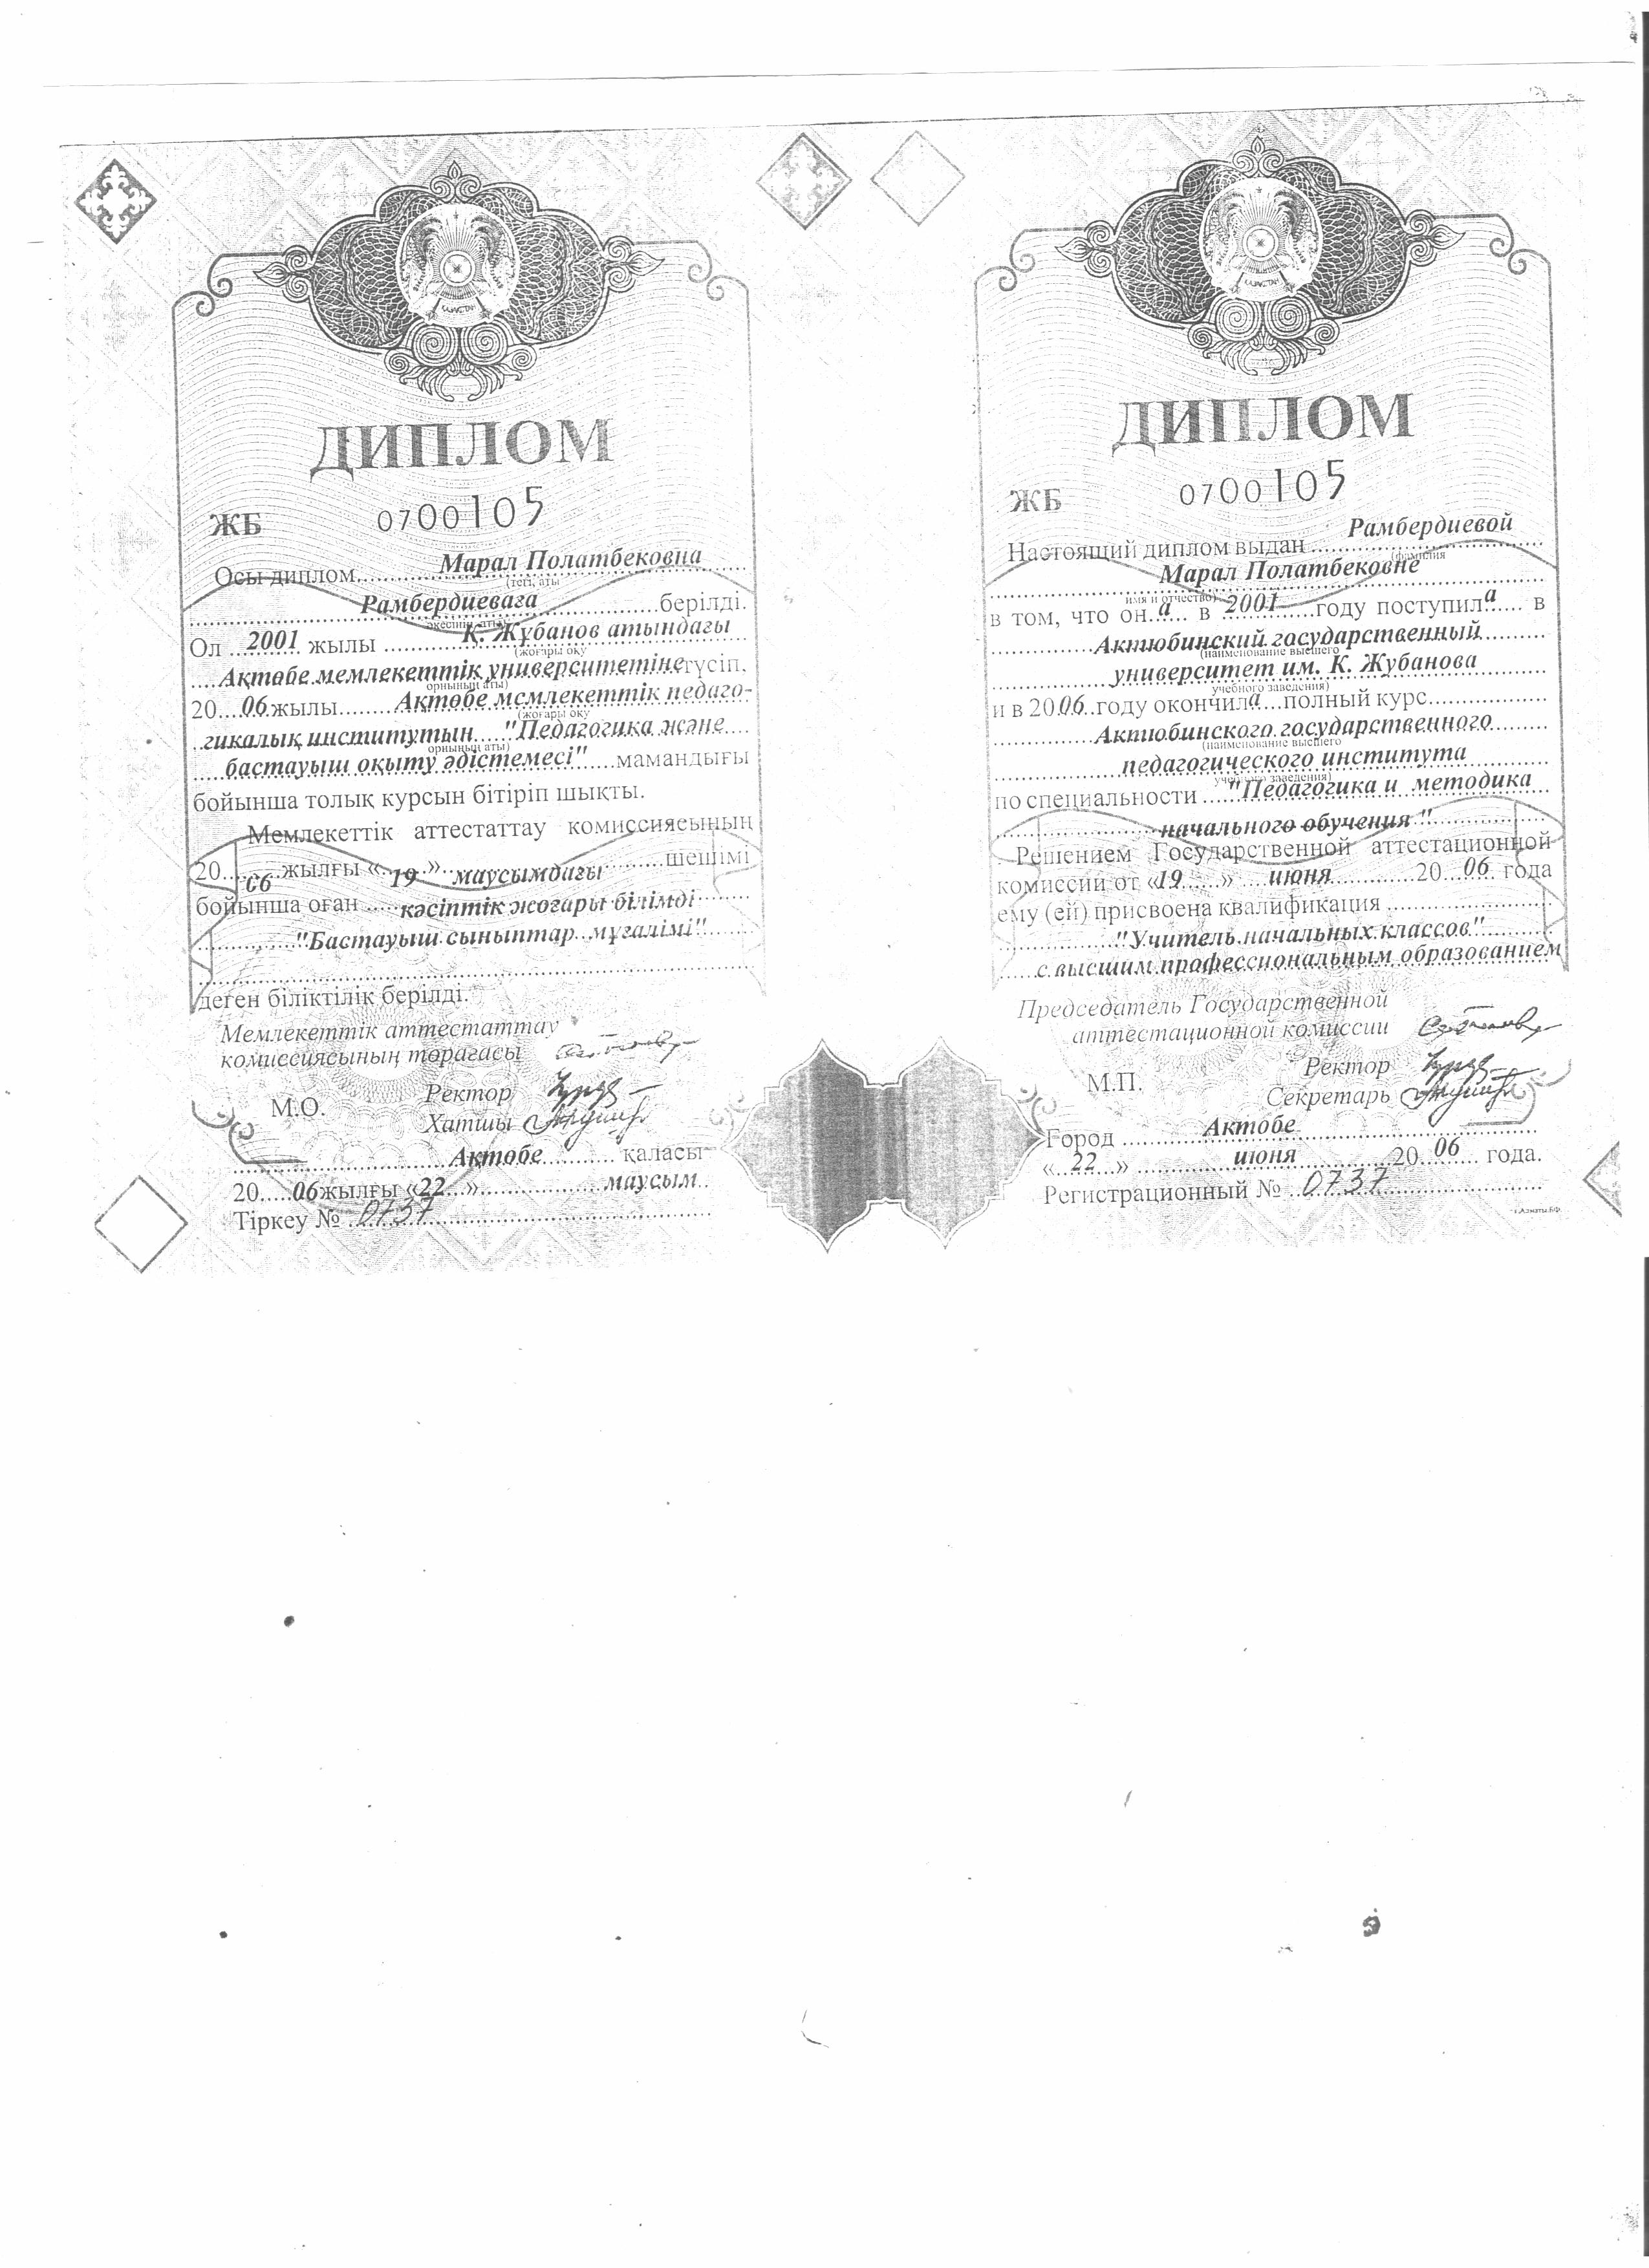 ДИПЛОМ
ЖБ 0700105
Осы диплом Марал Полатбековна
(тегі, аты
Рамбердиеваға берілді.
әкесінің аты)
Ол 2001 жылы Қ. Жұбанов атындағы
(жоғары оқу
Ақтөбе мемлекеттік университетіне түсіп,
орнының аты)
20 06 жылы Ақтөбе мемлекеттік педаго-
(жоғары оқу
гикалық институтын "Педагогика және
орнының аты)
бастауыш оқыту әдістемесі" мамандығы
бойынша толық курсын бітіріп шықты.
Мемлекеттік аттестаттау комиссиясының
20 06 жылғы « 19 » маусымдағы шешімі
бойынша оған кәсіптік жоғары білімді
"Бастауыш сыныптар мұғалімі"
деген біліктілік берілді.
Мемлекеттік аттестаттау
комиссиясының төрағасы
Ректор
М.О.
Хатшы
Ақтөбе қаласы
20 06 жылғы « 22 » маусым
Тіркеу № 0737
ДИПЛОМ
ЖБ 0700105
Настоящий диплом выдан Рамбердиевой
(фамилия
Марал Полатбековне
имя и отчество)
в том, что он а в 2001 году поступил а в
Актюбинский государственный
(наименование высшего
университет им. К. Жубанова
учебного заведения)
и в 20 06 году окончил а полный курс
Актюбинского государственного
(наименование высшего
педагогического института
учебного заведения)
по специальности "Педагогика и методика
начального обучения"
Решением Государственной аттестационной
комиссии от « 19 » июня 20 06 года
ему (ей) присвоена квалификация
"Учитель начальных классов"
с высшим профессиональным образованием
Председатель Государственной
аттестационной комиссии
Ректор
М.П.
Секретарь
Город Актобе
« 22 » июня 20 06 года.
Регистрационный № 0737